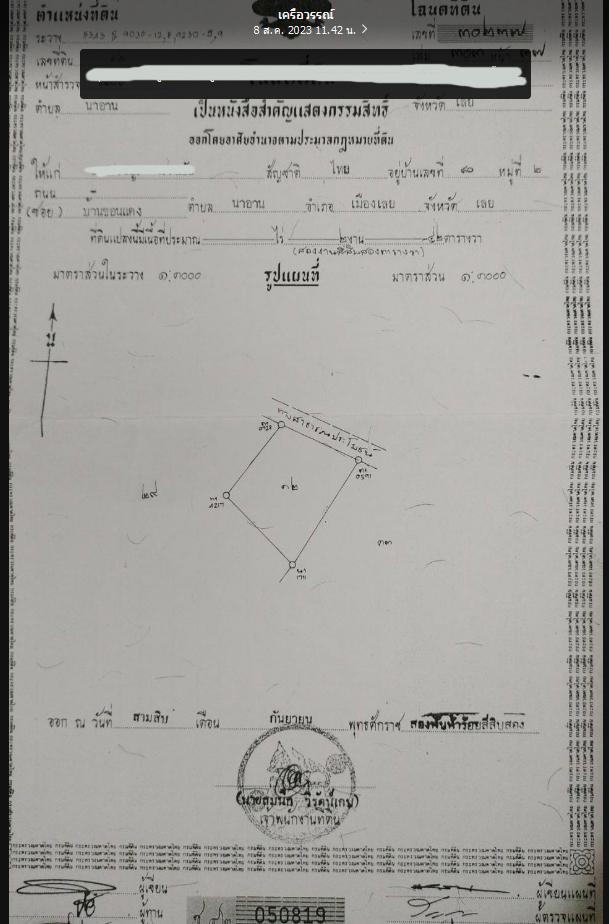 ตำแหน่งที่ดิน
เครือวรรณ์
โฉนดที่ดิน
8 ส.ค. 2023 11.42 น.
ระวาง
เลขที่ ๓๐๒๓๗
เลขที่ดิน
หน้าสำรวจ
ตำบล นาอาน
เป็นหนังสือสำคัญแสดงกรรมสิทธิ์
จังหวัด เลย
ออกโดยอาศัยอำนาจตามประมวลกฎหมายที่ดิน
ให้แก่ สัญชาติ ไทย อยู่บ้านเลขที่ ๘๐ หมู่ที่ ๒
ถนน
(ซอย) บ้านขอนแดง ตำบล นาอาน อำเภอ เมืองเลย จังหวัด เลย
ที่ดินแปลงนี้มีเนื้อที่ประมาณ ไร่ ๒ งาน ๔๒ ตารางวา
(สองงานสี่สิบสองตารางวา)
มาตราส่วนในระวาง ๑:๓๐๐๐
รูปแผนที่
มาตราส่วน ๑:๓๐๐๐
น
ทางสาธารณประโยชน์
๓๒
๒๙
๓๓
ออก ณ วันที่ สามสิบ เดือน กันยายน พุทธศักราช สองพันห้าร้อยสี่สิบสอง
เจ้าพนักงานที่ดิน
ผู้เขียน
ผู้เขียนแผนที่
ผู้ทาน
050819
ผู้ตรวจแผนที่